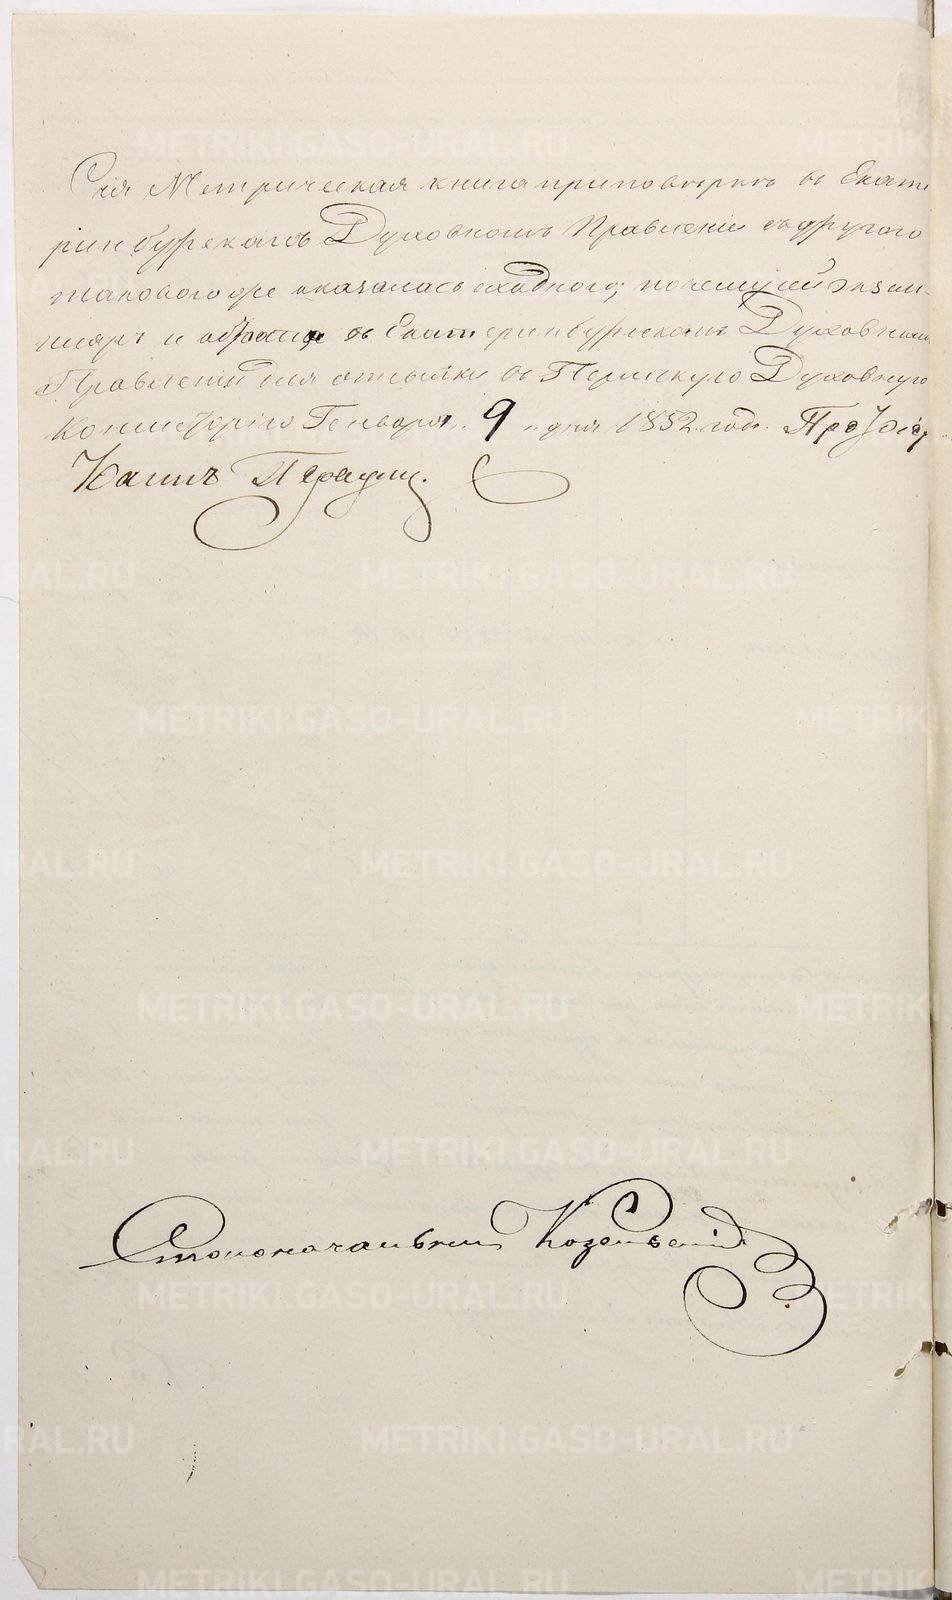 Сія Метрическая книга приповѣркѣ въ Екате
ринбургскомъ Духовномъ Правленіи съ другою
таковою же оказалась сходною; почему сей экзем
пляръ и въ Екатеринбургскомъ Духовномъ
Правленіи для отсылки въ Пермскую Духовную
Консисторію Генваря „9„ дня 1852 года. Протоіерей
Іоаннъ
Столоначальникъ
METRIKI.GASO-URAL.RU